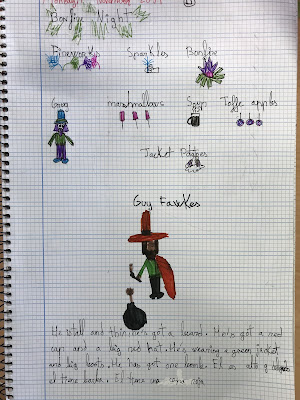 Bonfire Night
Fireworks Sparkles Bonfire
marshmallows Soup Toffe apples
Jacket Patatoes
Guy Fawkes
He is tall and thin. He's got a beard. He's got a red
cap and a big red hat. He's wearing a green jacket
and big boots. He has got one bomb. El es alto y
él tiene barba. El tiene una capa roja